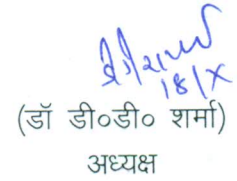 18/X
(डॉ डी०डी० शर्मा)
अध्यक्ष